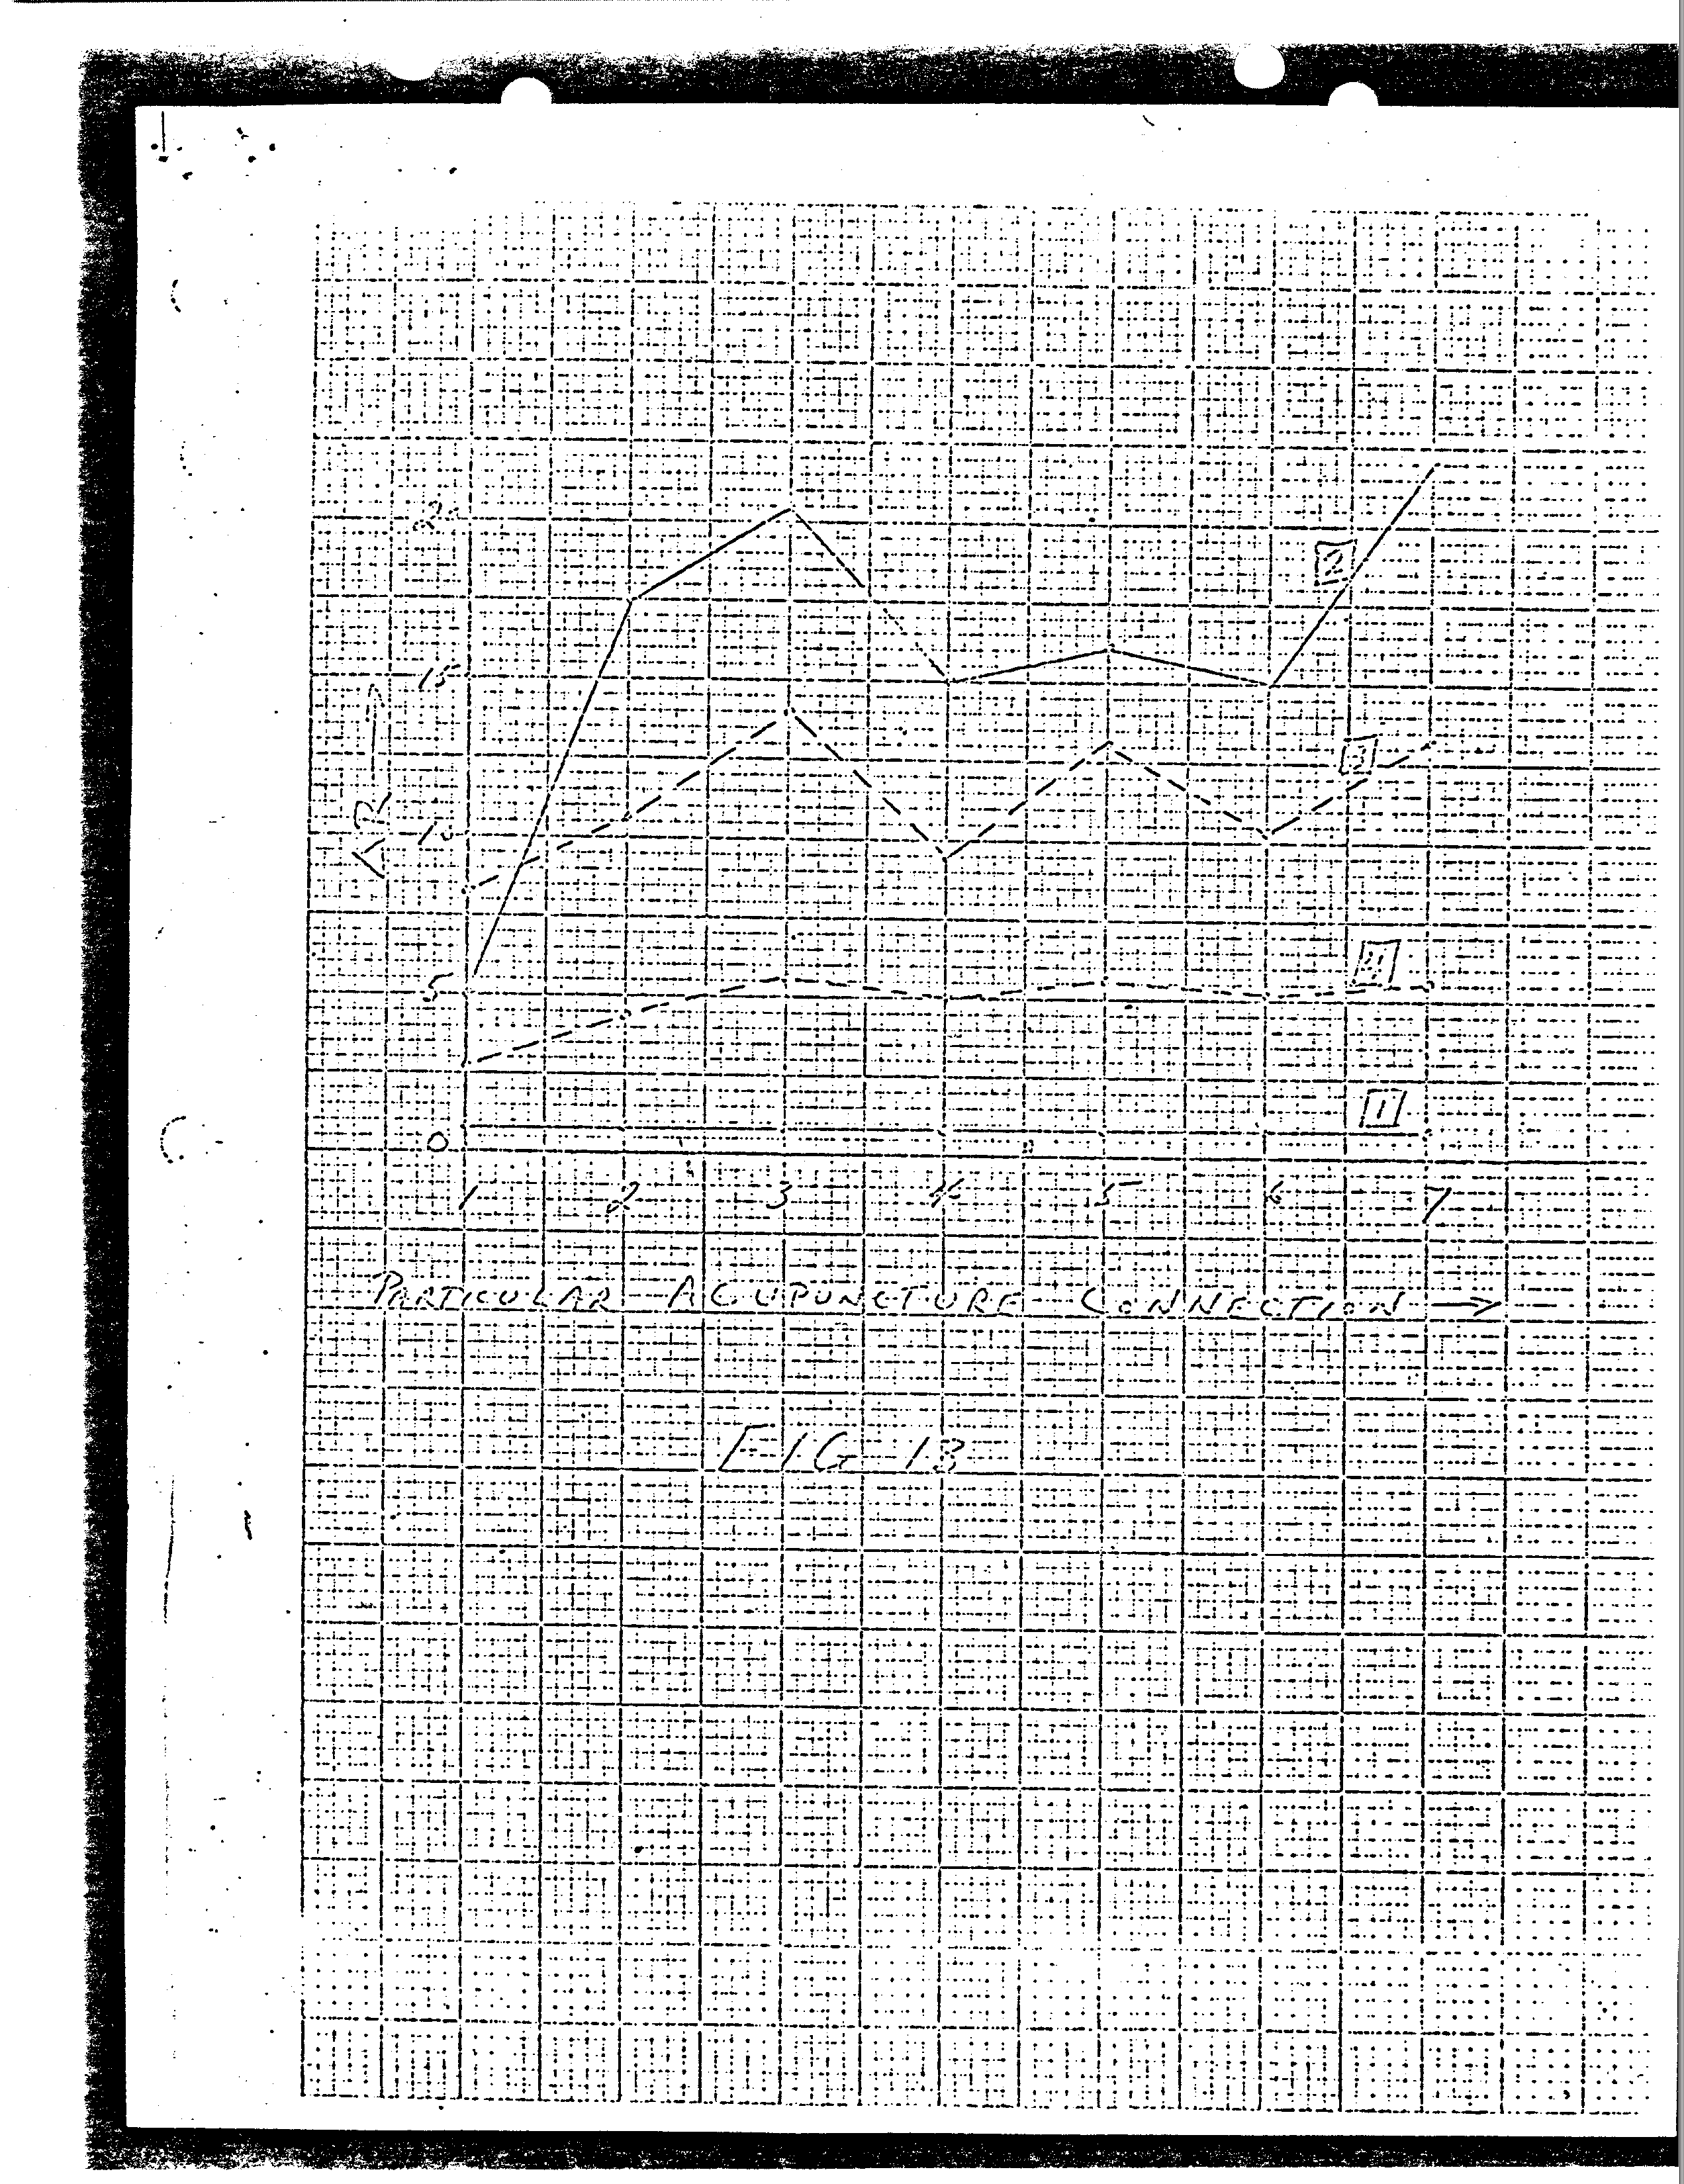 20
2
15
3
10
5
4
1
0
1 2 3 4 5 6 7
PARTICULAR ACUPUNCTURE CONNECTION →
FIG 13